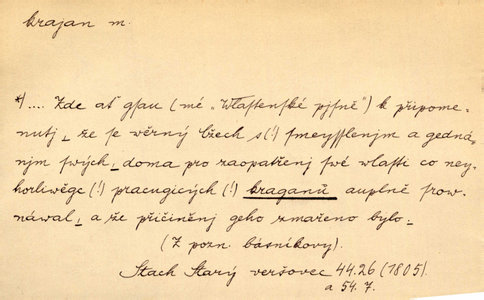 krajan m.
*) .... Zde ať gsau (mé „Wlastenské pjsně") k připome-
nutj, že se wěrný Čech s(!) smeyssleným a gedná-
njm swých, doma pro zaopatřenj swé wlasti co ney-
horliwěgc(!) pracugicých(!) kraganů auplně srow-
náwal, a že přičiněnj geho zmařeno bylo.
(Z pozn. básníkovy).
Stach Starý veršovec 44.26 (1805).
a 54. 7.